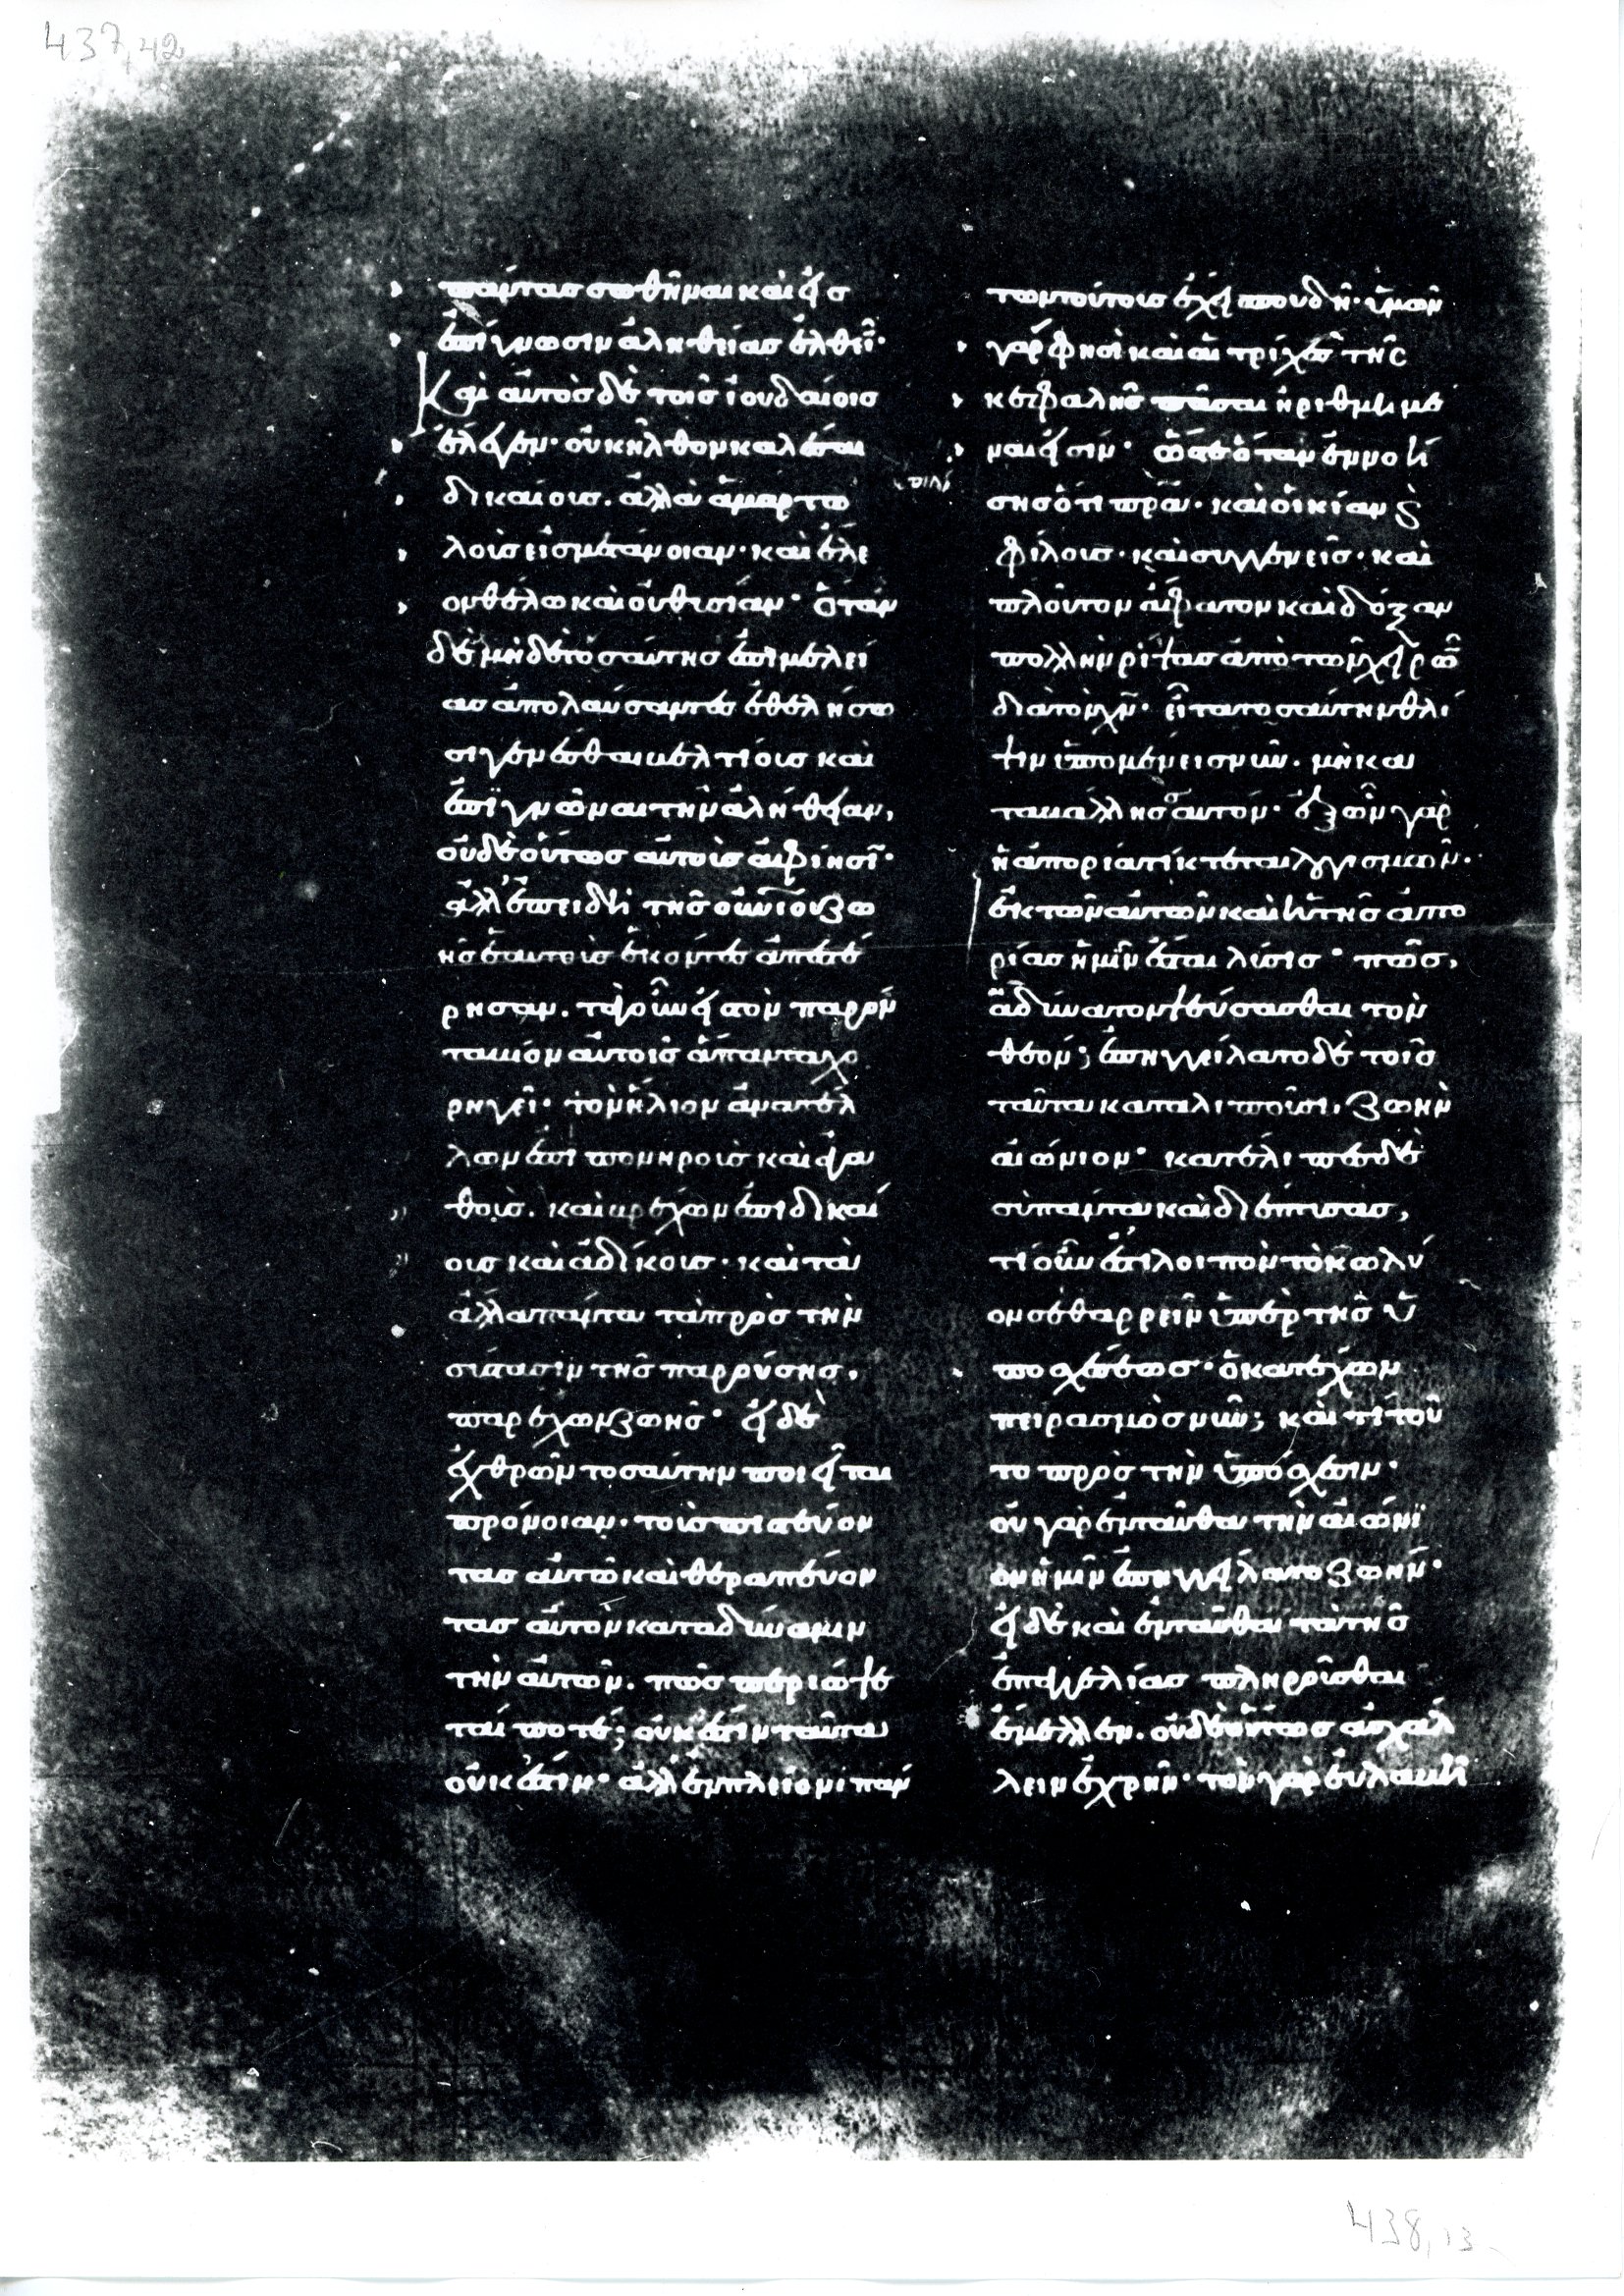 437,42
πάντας σωθῆναι καὶ εἰς
ἐπίγνωσιν ἀληθείας ἐλθεῖν·
Καὶ αὐτὸς δὲ τοῖς ἰουδαίοις
ἔλεγεν· οὐκ ἦλθον καλέσαι
δικαίους. ἀλλὰ ἁμαρτω
λοὺς εἰς μετάνοιαν· καὶ ἔλε
ον θέλω καὶ οὐ θυσίαν· ὅταν
δὲ μηδὲ τοσαύτης ἐπιμελεί
ας ἀπολαύσαντες ἐθελήσω
σι γενέσθαι βελτίους καὶ
ἐπιγνῶναι τὴν ἀλήθειαν,
οὐδὲ οὕτως αὐτοὺς ἀφίησι·
ἀλλ' ἐπειδὴ τῆς οὐνίου ζω
ῆς ἑαυτοὺς ἑκόντες ἀπεστέ
ρησαν. τὸν γοῦν εἰς τὸν παρόν
τα βίον αὐτοῖς ἅπαντα χο
ρηγεῖ· τὸν ἥλιον ἀνατέλ
λων ἐπὶ πονηροὺς καὶ ἀγα
θούς. καὶ βρέχων ἐπὶ δικαί
ους καὶ ἀδίκους· καὶ τὰ
ἄλλα πάντα τὰ πρὸς τὴν
σύστασιν τῆς παρούσης,
παρέχων ζωῆς· εἰ δὲ
ἐχθρῶν τοσαύτην ποιεῖται
πρόνοιαν· τοὺς πιστεύον
τας αὐτῶ καὶ θεραπεύον
τας αὐτὸν κατὰ δύναμιν
τὴν αὐτῶν. πῶς περιόψε
ταί ποτε; οὐκ ἔστιν ταῦτα
οὐκ ἔστιν· ἀλλ' ἐν πλείονι πάν
των τούτους ἔχει σπουδῆ· ὑμῶν
γάρ φησι καὶ αἱ τρίχες τῆς
κεφαλῆς πᾶσαι ἠριθμημέ
ναι εἰσίν· ὥστε ὅταν ἐννοή
σης ὅτι πρα· καὶ οἰκίαν
φίλους· καὶ συγγενεῖς· καὶ
πλοῦτον ἄφατον καὶ δόξαν
πολλὴν ῥίψας ἀπὸ τῶν χειρῶν
διὰ τὸν χν· εἶτα τοσαύτην θλί
ψιν ὑπομένεις νῦν. μὴ κα
ταβάλλης σαυτόν· ἐξ ὧν γὰρ
ἡ ἀπορία τίκτεται λογισμῶν·
ἐκ τῶν αὐτῶν καὶ ἡ τῆς ἀπο
ρίας ἡμῖν ἔσται λύσις· πῶς,
ἀδύνατον ψεύσασθαι τὸν
θεόν; ἐπηγγείλατο δὲ τοῖς
ταῦτα καταλιποῦσι, ζωὴν
αἰώνιον· κατέλιπες δὲ
σὺ πάντα καὶ διέπτυσας,
τί οὖν ἐπίλοιπον τὸ κωλύ
ον σε θαρρεῖν ὑπὲρ τῆς ὑ
ποσχέσεως· ὁ κατέχων
πειρασμὸς νῦν; καὶ τί τοῦ
το πρὸς τὴν ὑπόσχεσιν·
οὐ γὰρ ἐνταῦθα τὴν αἰώνι
ον ἡμῖν ἐπηγγείλατο ζωήν·
εἰ δὲ καὶ ἐνταῦθα τὰ τῆς
ἐπαγγελίας πληροῦσθαι
ἔμελλεν. οὐδὲ οὕτως ἀσχάλ
λειν ἐχρῆν· τὸν γὰρ εὐλαβῆ
438,13